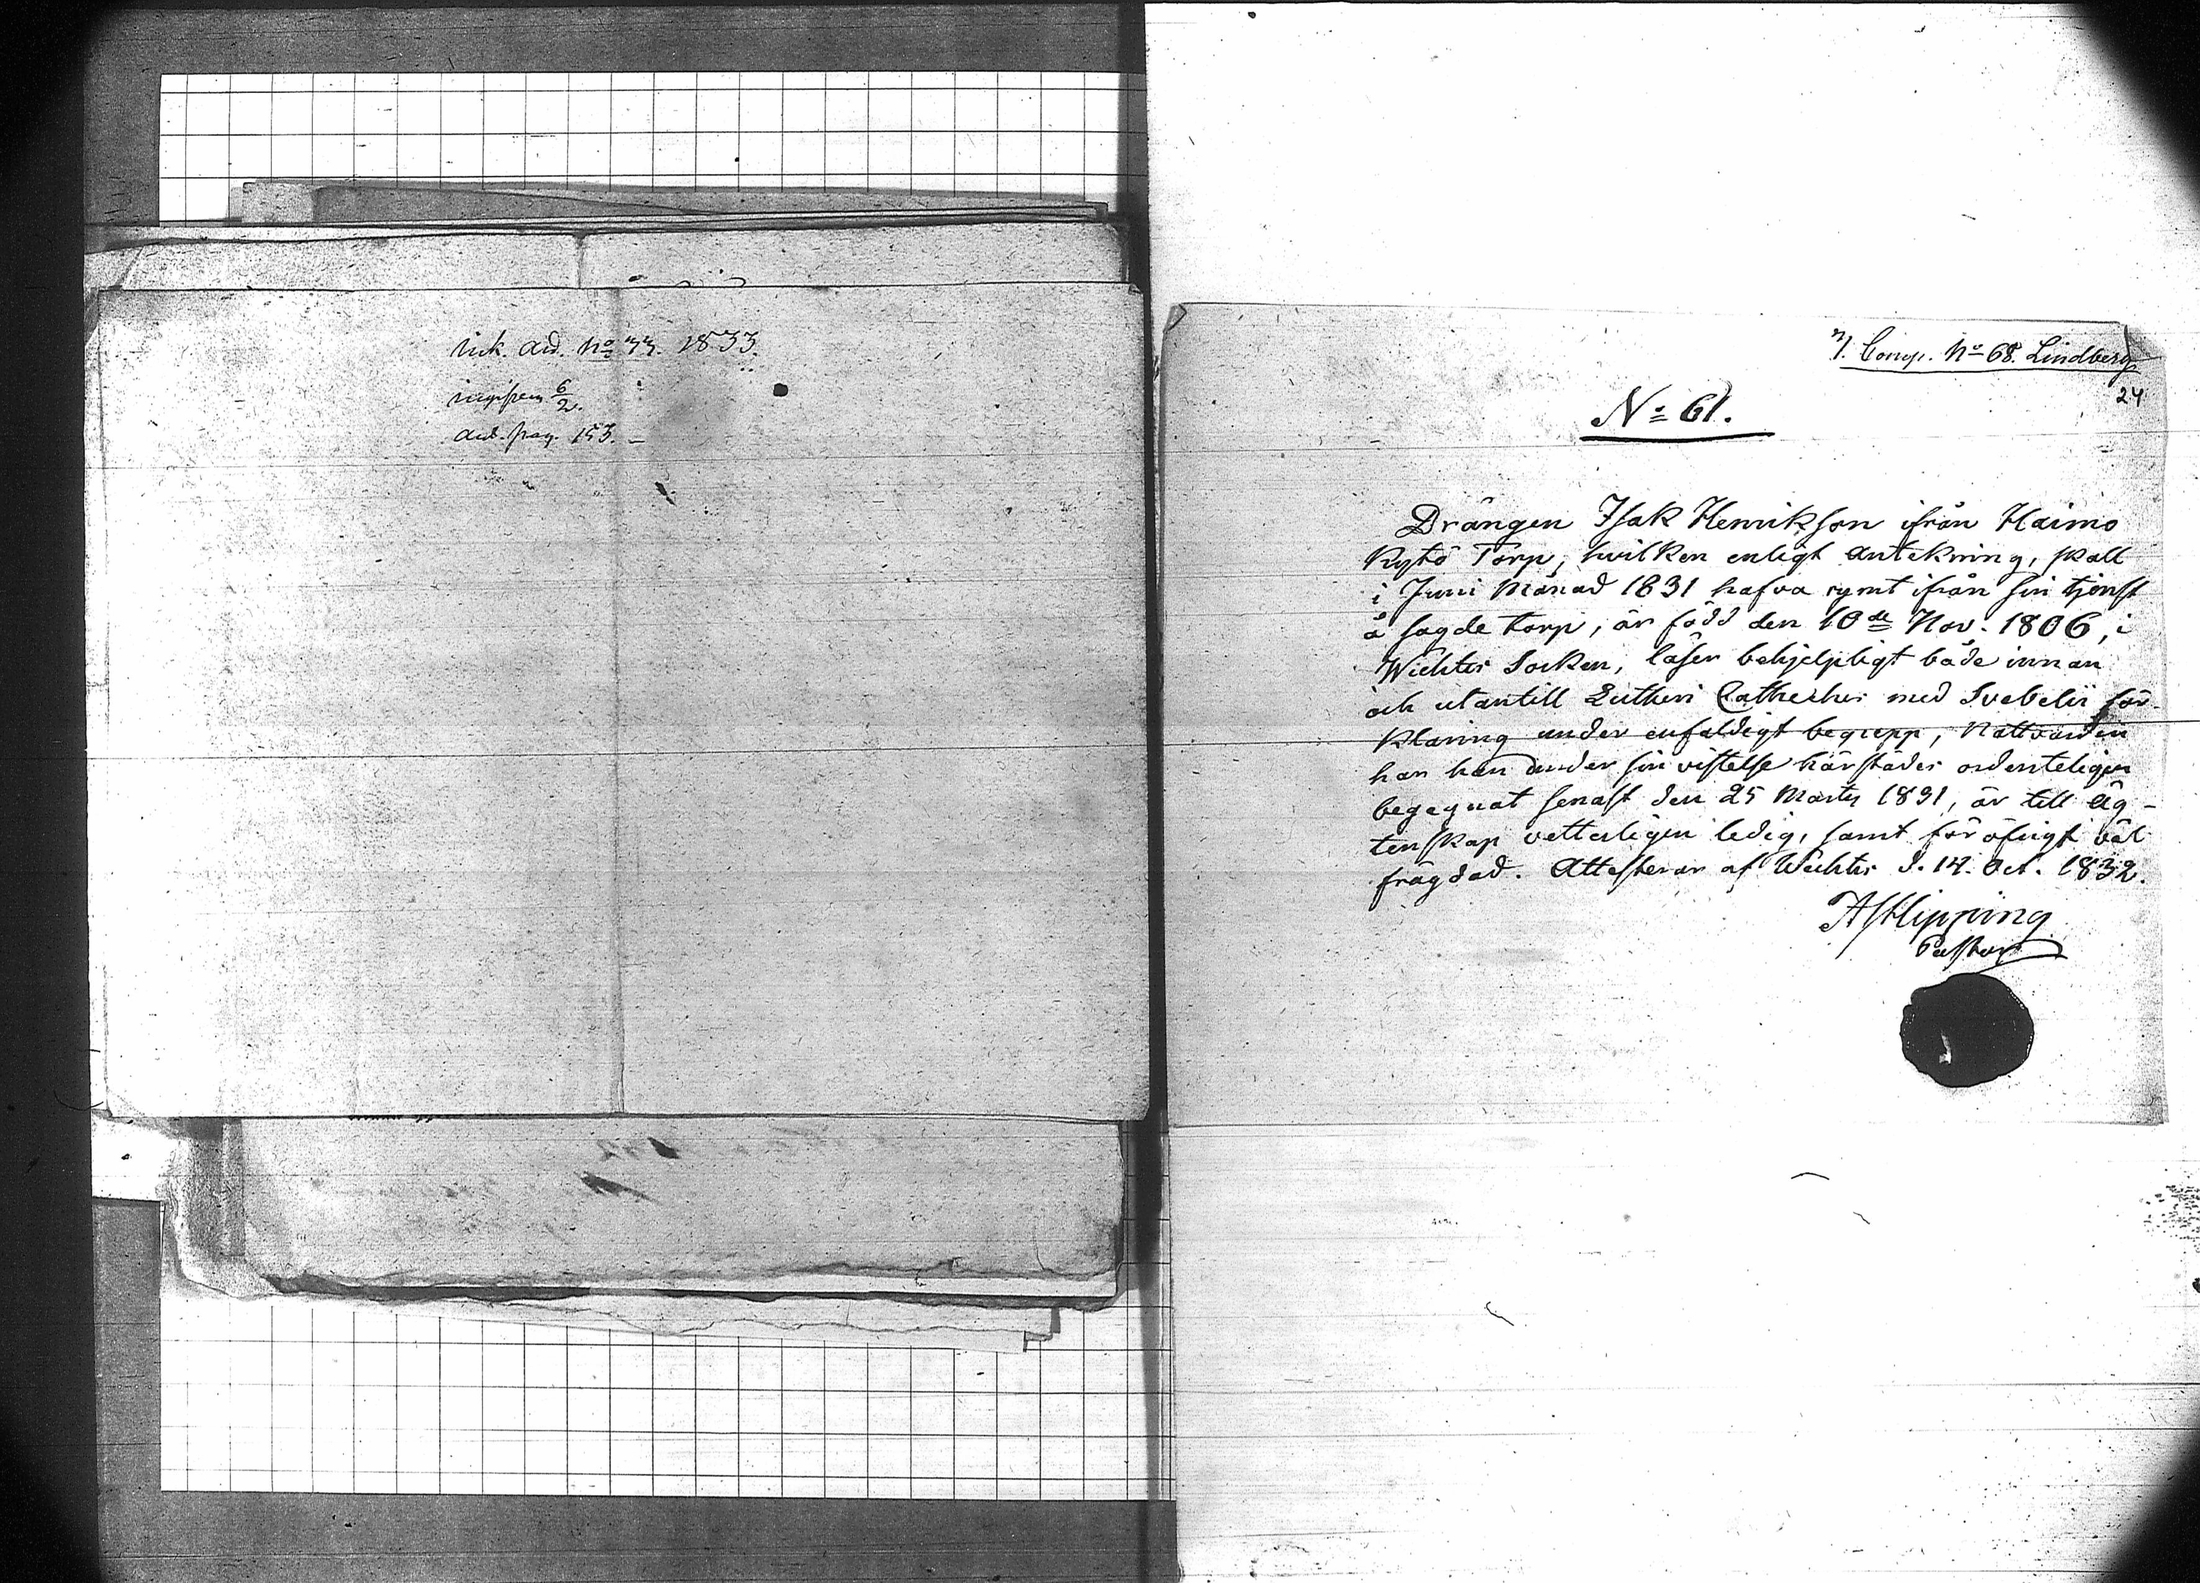 ank. ad. No 33. 1833.
6/2.
pag. 153. –
7. Comp. No 68. Lindberg
24
No 61.
Drängen Isak Henrikson ifrån Haimo
Kytö Torp, hvilken enligt antekning, skall
i Juni Månad 1831 hafva rymt ifrån sin tjenst
å sagde torp, är född den 10de Nov. 1806, i
Wichtis Socken, läser behjelpligt både innan
och utantill Lutheri Cathechis med Svebelii för-
klaring under enfaldigt begrepp, Nattvarden
har han under sin vistelse härstädes ordenteligen
begagnat senast den 25 Martii 1831, är till äg-
tenskap vetterligen ledig, samt för öfrigt väl
frägdad. Attesterar af Wichtis d. 14. Oct. 1832.
Pastor